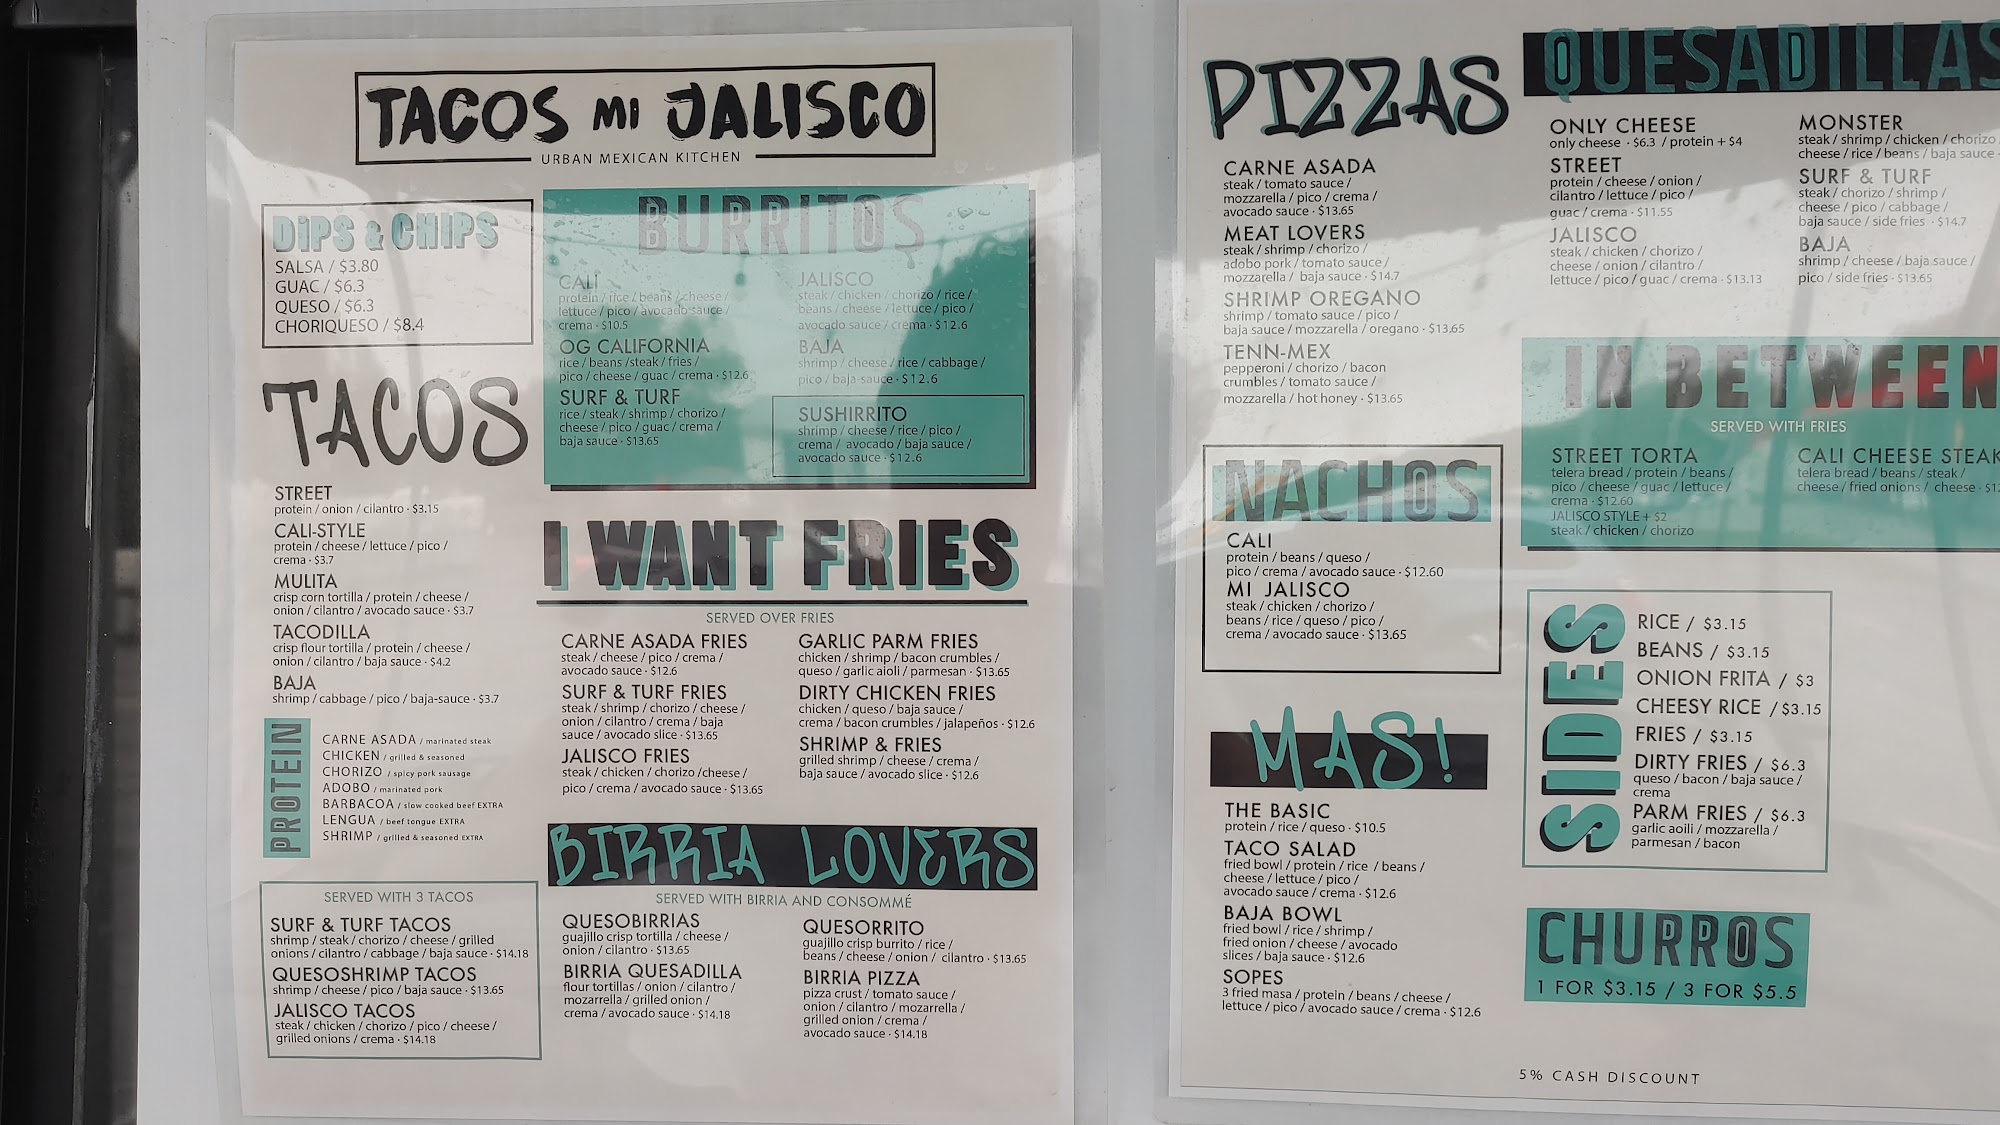 TACOS MI JALISCO
URBAN MEXICAN KITCHEN
DIPS & CHIPS
SALSA / $3.80
GUAC / $6.3
QUESO / $6.3
CHORIQUESO / $8.4
TACOS
STREET
protein / onion / cilantro · $3.15
CALI-STYLE
protein / cheese / lettuce / pico /
crema · $3.7
MULITA
crisp corn tortilla / protein / cheese /
onion / cilantro / avocado sauce · $3.7
TACODILLA
crisp flour tortilla / protein / cheese /
onion / cilantro / baja sauce · $4.2
BAJA
shrimp / cabbage / pico / baja-sauce · $3.7
PROTEIN
CARNE ASADA / marinated steak
CHICKEN / grilled & seasoned
CHORIZO / spicy pork sausage
ADOBO / marinated pork
BARBACOA / slow cooked beef EXTRA
LENGUA / beef tongue EXTRA
SHRIMP / grilled & seasoned EXTRA
SERVED WITH 3 TACOS
SURF & TURF TACOS
shrimp / steak / chorizo / cheese / grilled
onions / cilantro / cabbage / baja sauce · $14.18
QUESOSHRIMP TACOS
shrimp / cheese / pico / baja sauce · $13.65
JALISCO TACOS
steak / chicken / chorizo / pico / cheese /
grilled onions / crema · $14.18
BURRITOS
CALI
protein / rice / beans / cheese /
lettuce / pico / avocado sauce /
crema · $10.5
OG CALIFORNIA
rice / beans /steak / fries /
pico / cheese / guac / crema · $12.6
SURF & TURF
rice / steak / shrimp / chorizo /
cheese / pico / guac / crema /
baja sauce · $13.65
JALISCO
steak / chicken / chorizo / rice /
beans / cheese / lettuce / pico /
avocado sauce / crema · $12.6
BAJA
shrimp / cheese / rice / cabbage /
pico / baja-sauce · $12.6
SUSHIRRITO
shrimp / cheese / rice / pico /
crema / avocado / baja sauce /
avocado sauce · $12.6
I WANT FRIES
SERVED OVER FRIES
CARNE ASADA FRIES
steak / cheese / pico / crema /
avocado sauce · $12.6
SURF & TURF FRIES
steak / shrimp / chorizo / cheese /
onion / cilantro / crema / baja
sauce / avocado slice · $13.65
JALISCO FRIES
steak / chicken / chorizo /cheese /
pico / crema / avocado sauce · $13.65
GARLIC PARM FRIES
chicken / shrimp / bacon crumbles /
queso / garlic aioli / parmesan · $13.65
DIRTY CHICKEN FRIES
chicken / queso / baja sauce /
crema / bacon crumbles / jalapeños · $12.6
SHRIMP & FRIES
grilled shrimp / cheese / crema /
baja sauce / avocado slice · $12.6
BIRRIA LOVERS
SERVED WITH BIRRIA AND CONSOMMÉ
QUESOBIRRIAS
guajillo crisp tortilla / cheese /
onion / cilantro · $13.65
BIRRIA QUESADILLA
flour tortillas / onion / cilantro /
mozarrella / grilled onion /
crema / avocado sauce · $14.18
QUESORRITO
guajillo crisp burrito / rice /
beans / cheese / onion / cilantro · $13.65
BIRRIA PIZZA
pizza crust / tomato sauce /
onion / cilantro / mozarrella /
grilled onion / crema /
avocado sauce · $14.18
PIZZAS
CARNE ASADA
steak / tomato sauce /
mozzarella / pico / crema /
avocado sauce · $13.65
MEAT LOVERS
steak / shrimp / chorizo /
adobo pork / tomato sauce /
mozzarella / baja sauce · $14.7
SHRIMP OREGANO
shrimp / tomato sauce / pico /
baja sauce / mozzarella / oregano · $13.65
TENN-MEX
pepperoni / chorizo / bacon
crumbles / tomato sauce /
mozzarella / hot honey · $13.65
NACHOS
CALI
protein / beans / queso /
pico / crema / avocado sauce · $12.60
MI JALISCO
steak / chicken / chorizo /
beans / rice / queso / pico /
crema / avocado sauce · $13.65
MAS!
THE BASIC
protein / rice / queso · $10.5
TACO SALAD
fried bowl / protein / rice / beans /
cheese / lettuce / pico /
avocado sauce / crema · $12.6
BAJA BOWL
fried bowl / rice / shrimp /
fried onion / cheese / avocado
slices / baja sauce · $12.6
SOPES
3 fried masa / protein / beans / cheese /
lettuce / pico / avocado sauce / crema · $12.6
QUESADILLAS
ONLY CHEESE
only cheese · $6.3 / protein + $4
STREET
protein / cheese / onion /
cilantro / lettuce / pico /
guac / crema · $11.55
JALISCO
steak / chicken / chorizo /
cheese / onion / cilantro /
lettuce / pico / guac / crema · $13.13
MONSTER
steak / shrimp / chicken / chorizo
cheese / rice / beans / baja sauce
SURF & TURF
steak / chorizo / shrimp /
cheese / pico / cabbage /
baja sauce / side fries · $14.7
BAJA
shrimp / cheese / baja sauce /
pico / side fries · $13.65
IN BETWEEN
SERVED WITH FRIES
STREET TORTA
telera bread / protein / beans /
pico / cheese / guac / lettuce /
crema · $12.60
JALISCO STYLE + $2
steak / chicken / chorizo
CALI CHEESE STEAK
telera bread / beans / steak /
cheese / fried onions / cheese ·
SIDES
RICE / $3.15
BEANS / $3.15
ONION FRITA / $3
CHEESY RICE / $3.15
FRIES / $3.15
DIRTY FRIES / $6.3
queso / bacon / baja sauce /
crema
PARM FRIES / $6.3
garlic aoili / mozzarella /
parmesan / bacon
CHURROS
1 FOR $3.15 / 3 FOR $5.5
5% CASH DISCOUNT